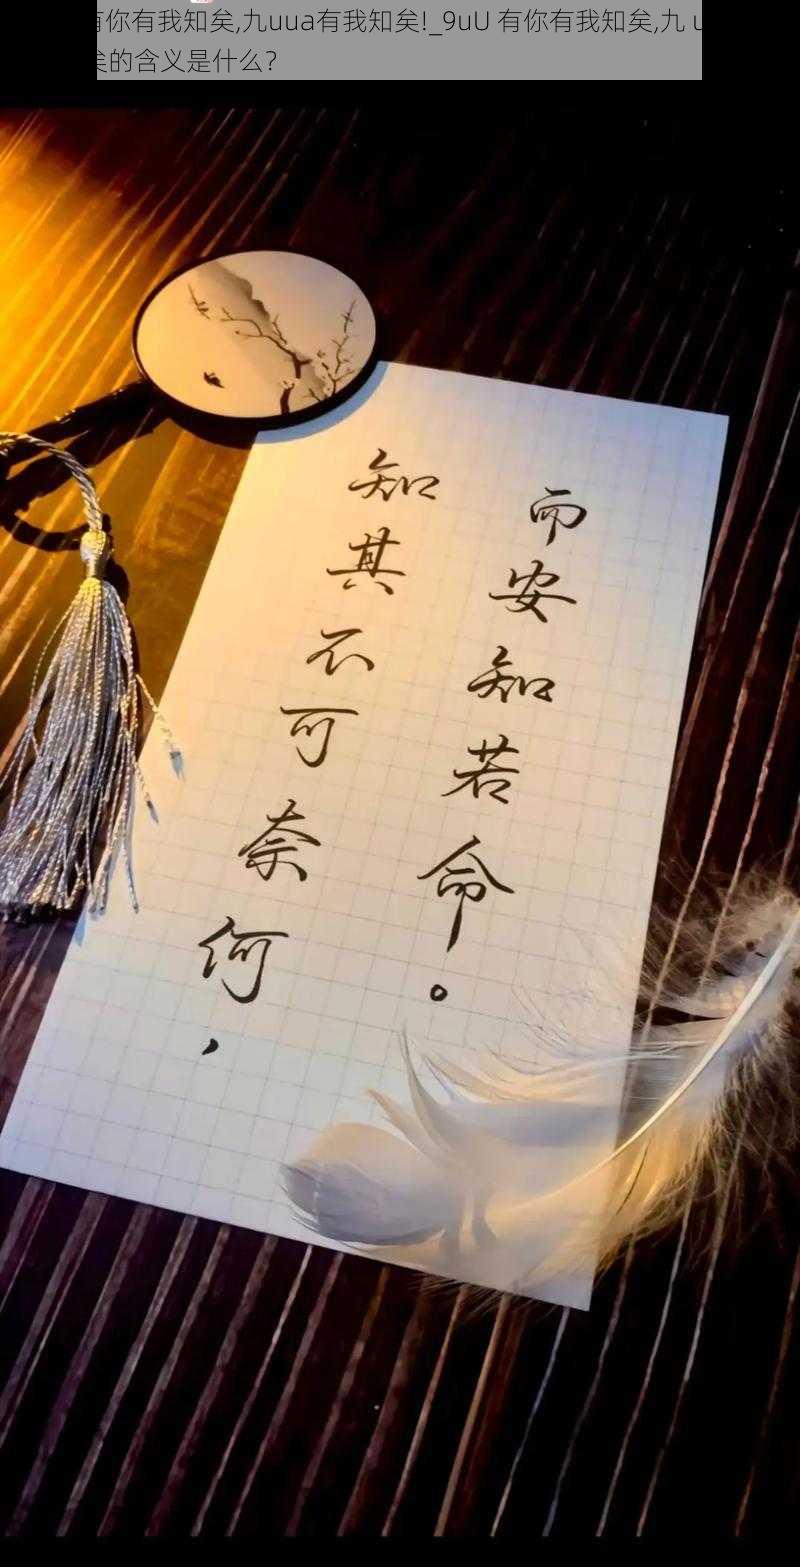 有你有我知矣,九uua有我知矣!_9uU 有你有我知矣,九 u
矣的含义是什么？
知其不可奈何，
而安知若命。